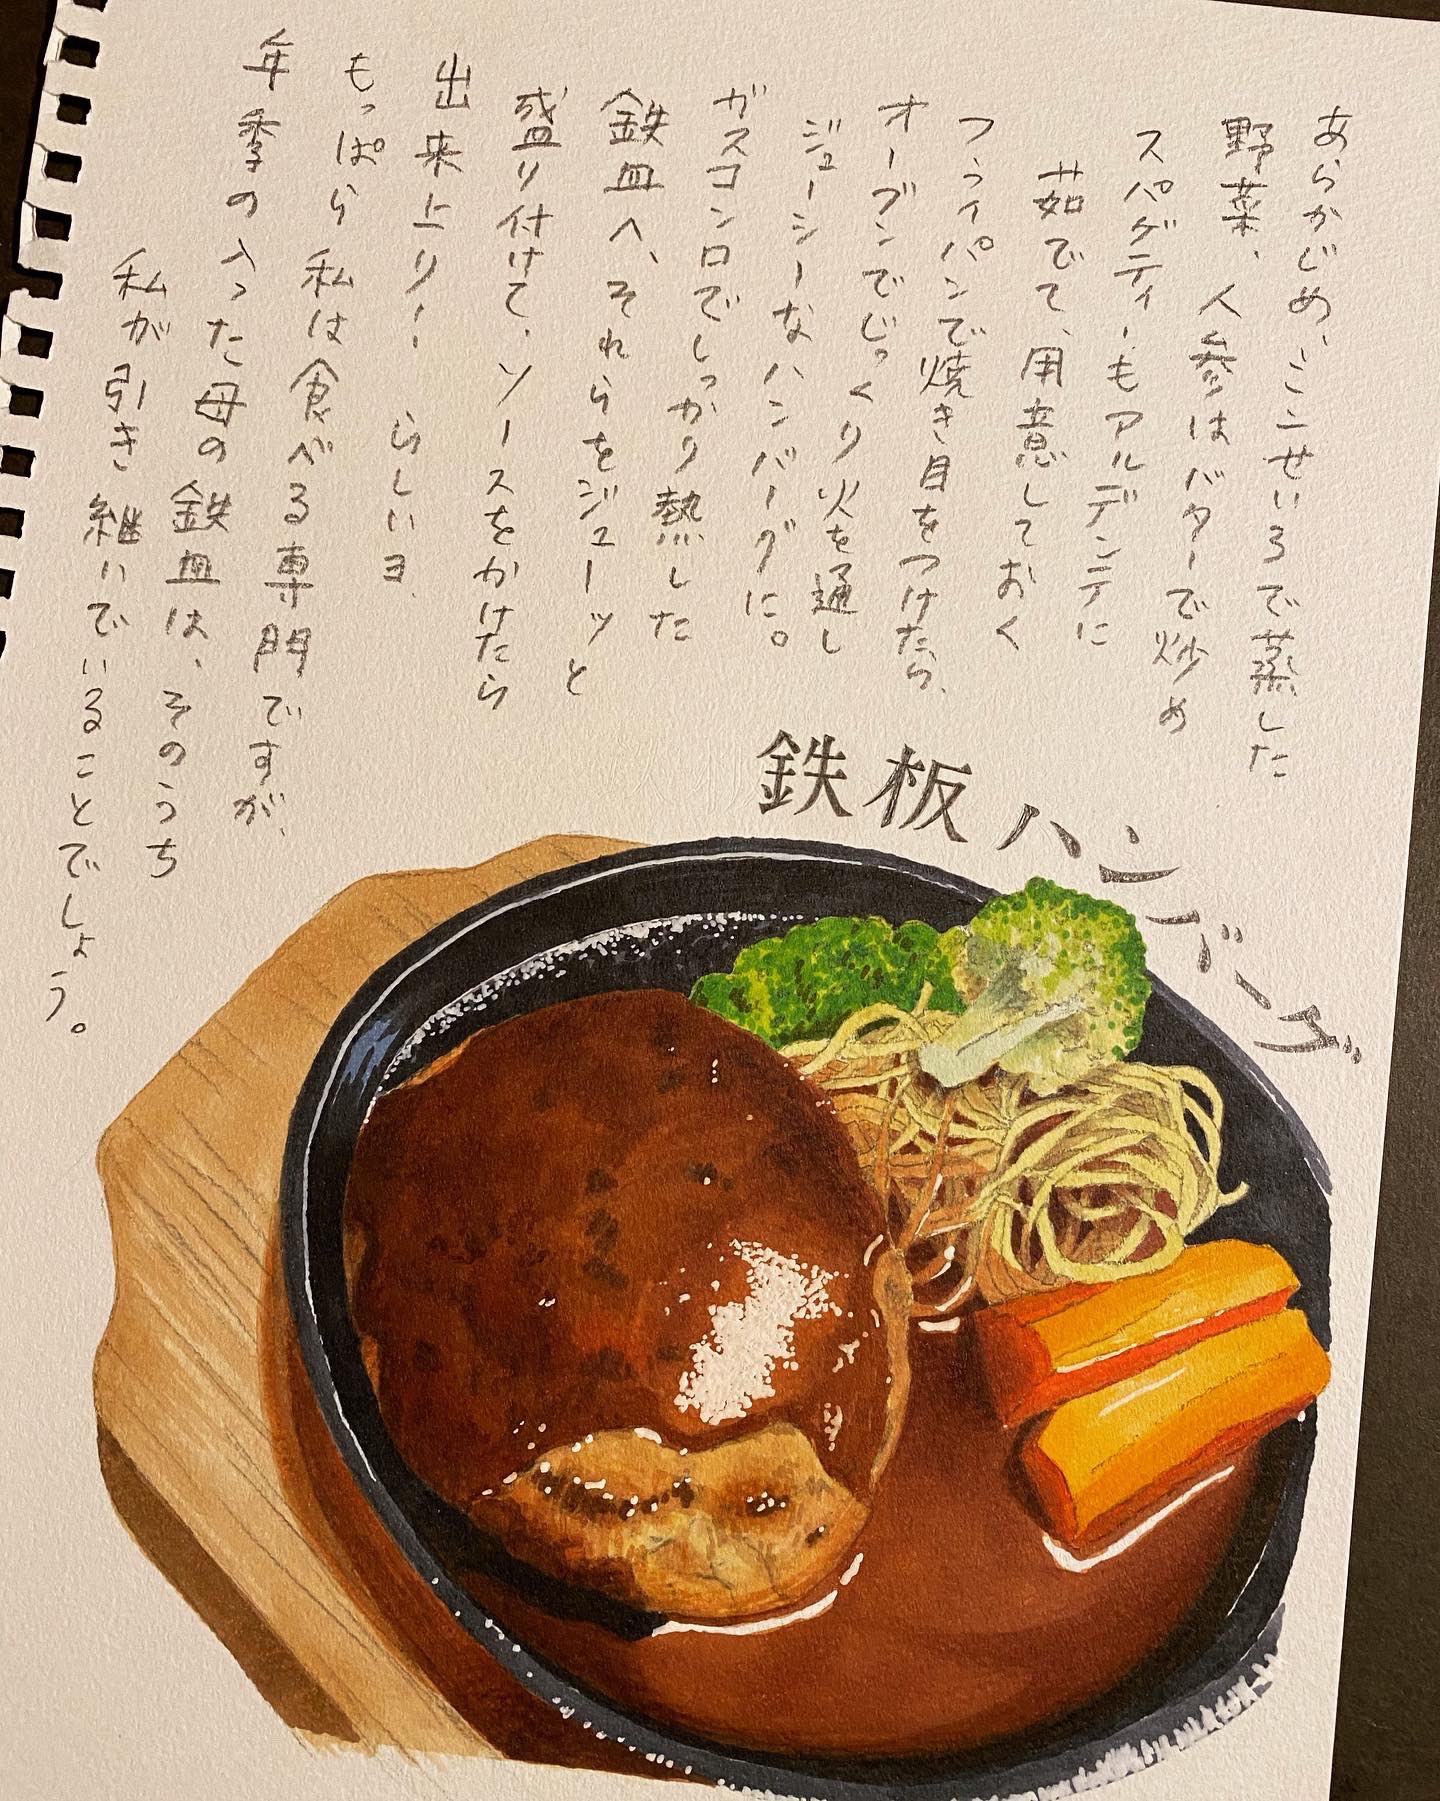 あらかじめ、ミニせいろで蒸した
野菜、人参はバターで炒め
スパゲティーもアルデンテに
茹でて、用意しておく
フライパンで焼き目をつけたら、
オーブンでじっくり火を通し
ジューシーなハンバーグに。
ガスコンロでしっかり熱した
鉄皿へ、それらをジューッと
盛り付けて、ソースをかけたら
出来上り! らしいヨ、
もっぱら私は食べる専門ですが、
年季の入った母の鉄皿は、そのうち
私が引き継いでいることでしょう。
鉄板ハンバーグ